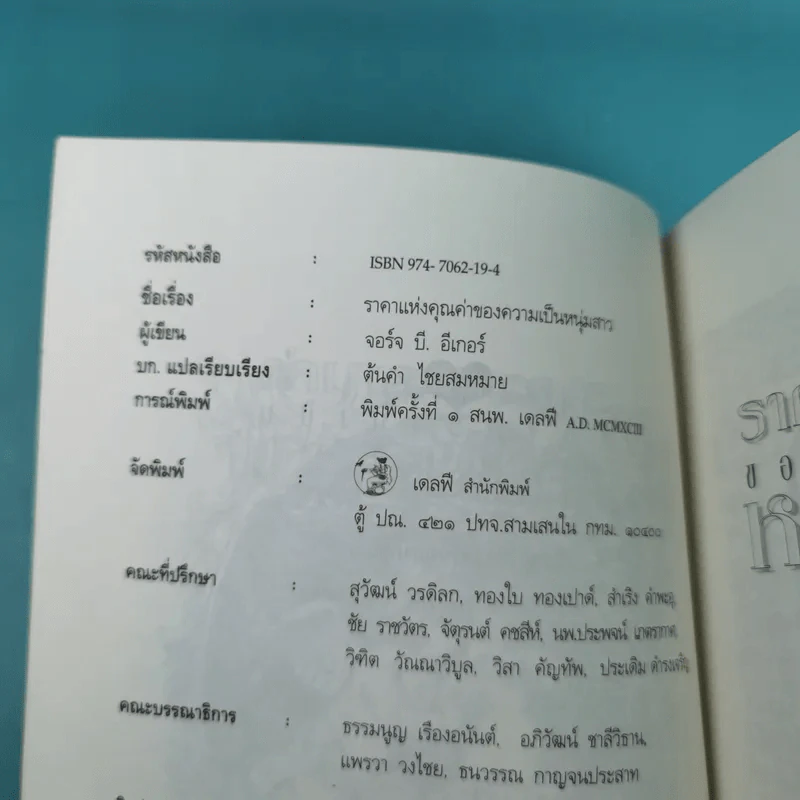 รหัสหนังสือ : ISBN 974- 7062-19-4
ชื่อเรื่อง : ราคาแห่งคุณค่าของความเป็นหนุ่มสาว
ผู้เขียน : จอร์จ บี. อีเกอร์
บก. แปลเรียบเรียง : ต้นคำ ไชยสมหมาย
การณ์พิมพ์ : พิมพ์ครั้งที่ ๑ สนพ. เดลฟี A.D. MCMXCIII
จัดพิมพ์ : เดลฟี สำนักพิมพ์
ตู้ ปณ. ๔๒๑ ปทจ.สามเสนใน กทม. ๑๐๔๐๐
คณะที่ปรึกษา : สุวัฒน์ วรดิลก, ทองใบ ทองเปาด์, สำเริง คำพะอุ,
ชัย ราชวัตร, จัตุรนต์ คชสีห์, นพ.ประพจน์ เภตรากาศ,
วิฑิต วัณณาวิบูล, วิสา คัญทัพ, ประเดิม ดำรงเจริญ
คณะบรรณาธิการ : ธรรมนูญ เรืองอนันต์, อภิวัฒน์ ชาลีวิธาน,
แพรวา วงไชย, ธนวรรณ กาญจนประสาท